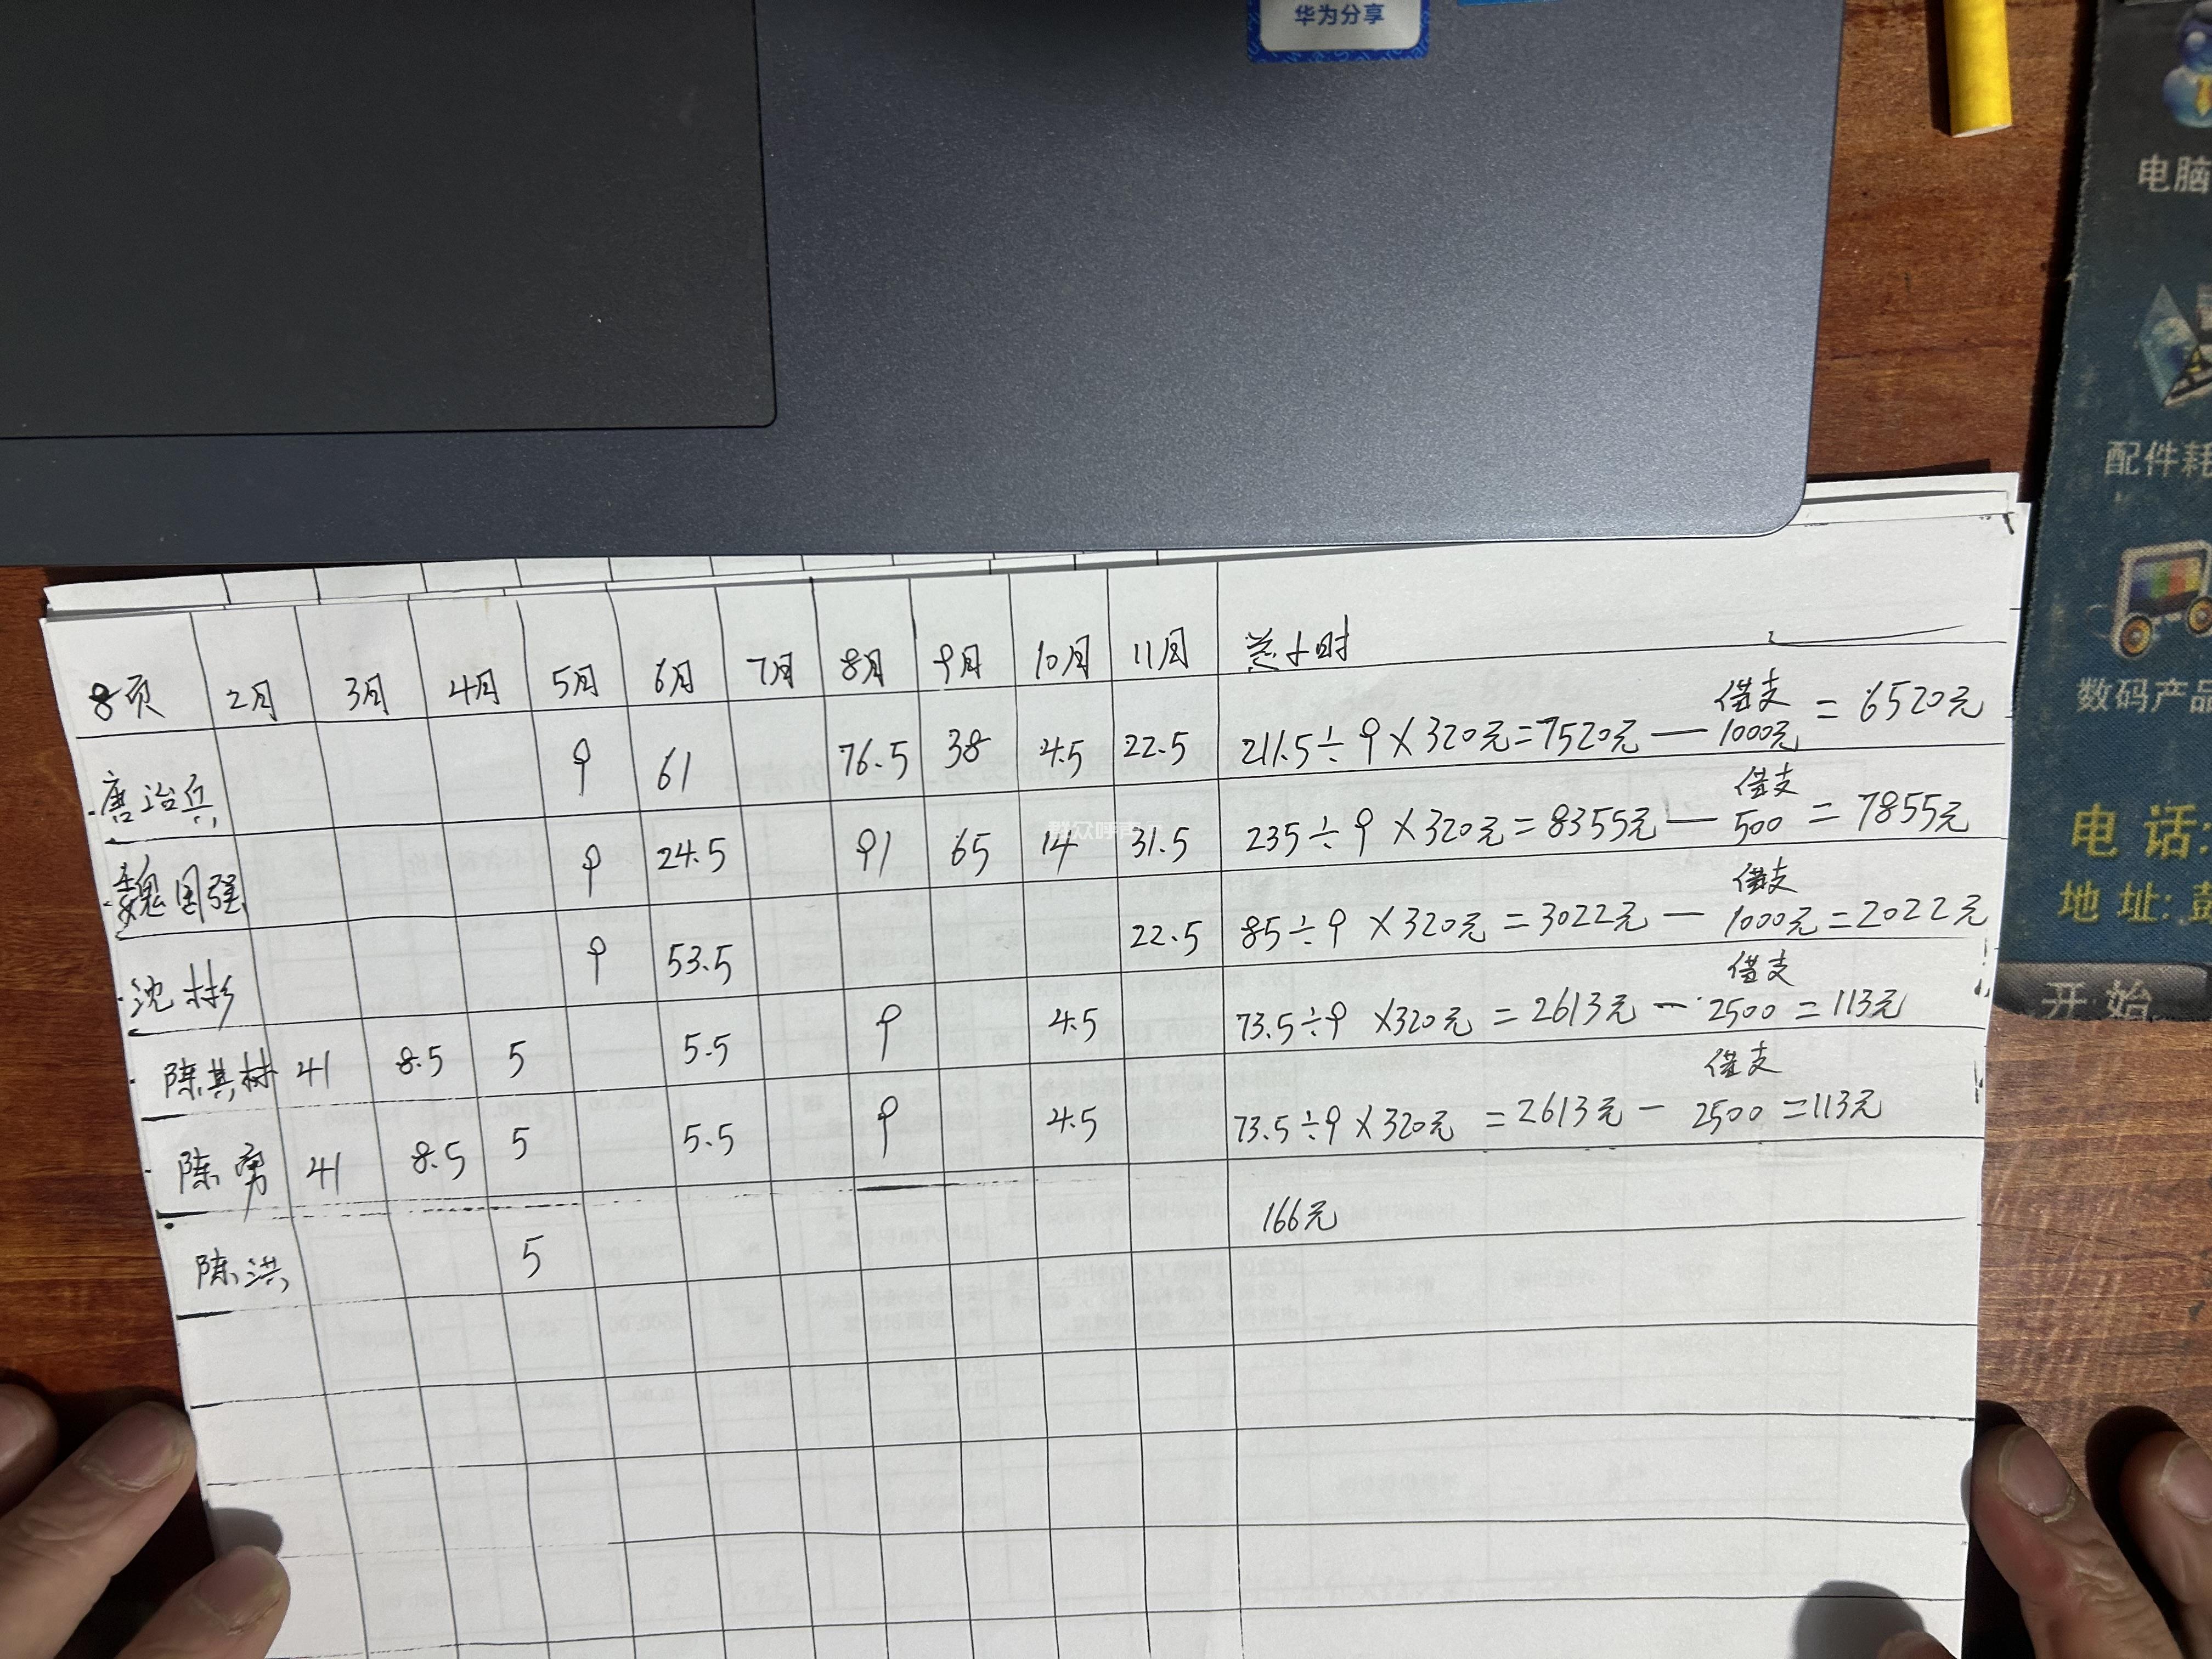 华为分享
电脑
配件耗
数码产品
电话:
地址:
开始
8页 2月 3月 4月 5月 6月 7月 8月 9月 10月 11月 总小时
唐治兵 9 61 76.5 38 4.5 22.5 211.5÷9×320元=7520元—借支1000元=6520元
魏国强 9 24.5 91 65 14 31.5 235÷9×320元=8355元—借支500=7855元
沈彬 9 53.5 22.5 85÷9×320元=3022元—借支1000元=2022元
陈其林 41 8.5 5 5.5 9 4.5 73.5÷9×320元=2613元—借支2500=113元
陈勇 41 8.5 5 5.5 9 4.5 73.5÷9×320元=2613元—借支2500=113元
陈洪 5 166元
群众呼声